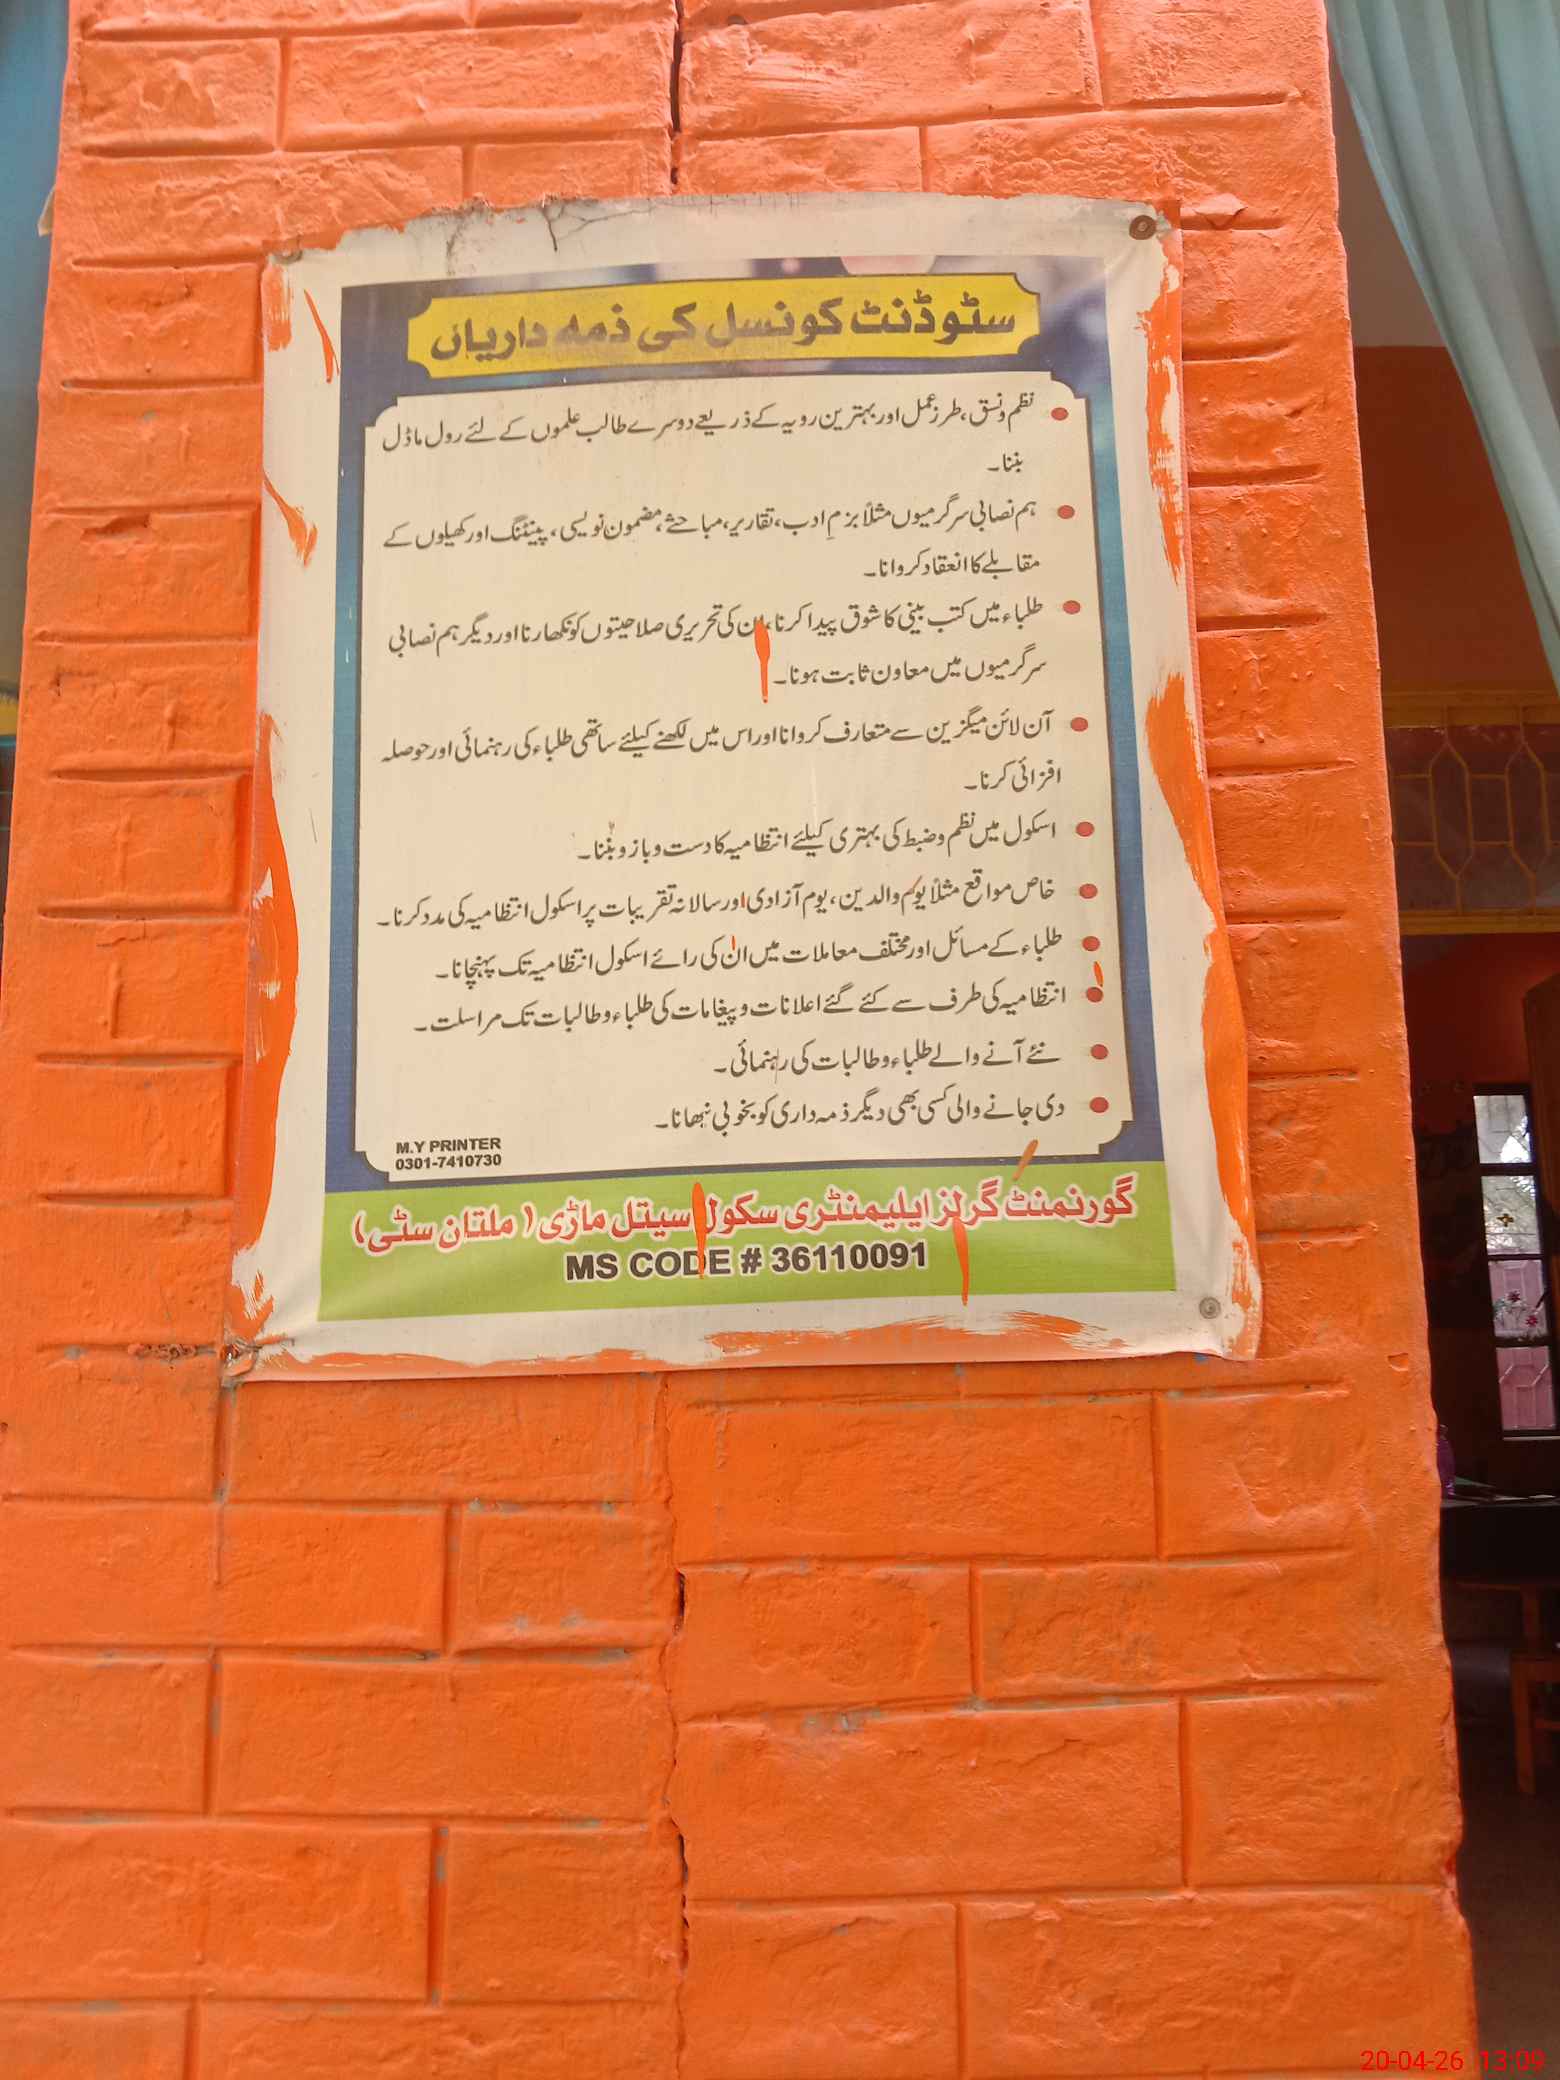 سٹوڈنٹ کونسل کی ذمہ داریاں
نظم و نسق، طرز عمل اور بہترین رویہ کے ذریعے دوسرے طالب علموں کے لئے رول ماڈل
بننا۔
ہم نصابی سرگرمیوں مثلاً بزمِ ادب، تقاریر، مباحثے، مضمون نویسی، پینٹنگ اور کھیلوں کے
مقابلے کا انعقاد کروانا۔
طلباء میں کتب بینی کا شوق پیدا کرنا، ان کی تحریری صلاحیتوں کو نکھارنا اور دیگر ہم نصابی
سرگرمیوں میں معاون ثابت ہونا۔
آن لائن میگزین سے متعارف کروانا اور اس میں لکھنے کیلئے ساتھی طلباء کی رہنمائی اور حوصلہ
افزائی کرنا۔
اسکول میں نظم و ضبط کی بہتری کیلئے انتظامیہ کا دست و بازو بننا۔
خاص مواقع مثلاً یوم والدین، یوم آزادی اور سالانہ تقریبات پر اسکول انتظامیہ کی مدد کرنا۔
طلباء کے مسائل اور مختلف معاملات میں ان کی رائے اسکول انتظامیہ تک پہنچانا۔
انتظامیہ کی طرف سے کئے گئے اعلانات و پیغامات کی طلباء و طالبات تک مراسلت۔
نئے آنے والے طلباء و طالبات کی راہنمائی۔
دی جانے والی کسی بھی دیگر ذمہ داری کو بخوبی نبھانا۔
M.Y PRINTER
0301-7410730
گورنمنٹ گرلز ایلیمنٹری سکول سیتل ماڑی (ملتان سٹی)
MS CODE # 36110091
20-04-26 13:09